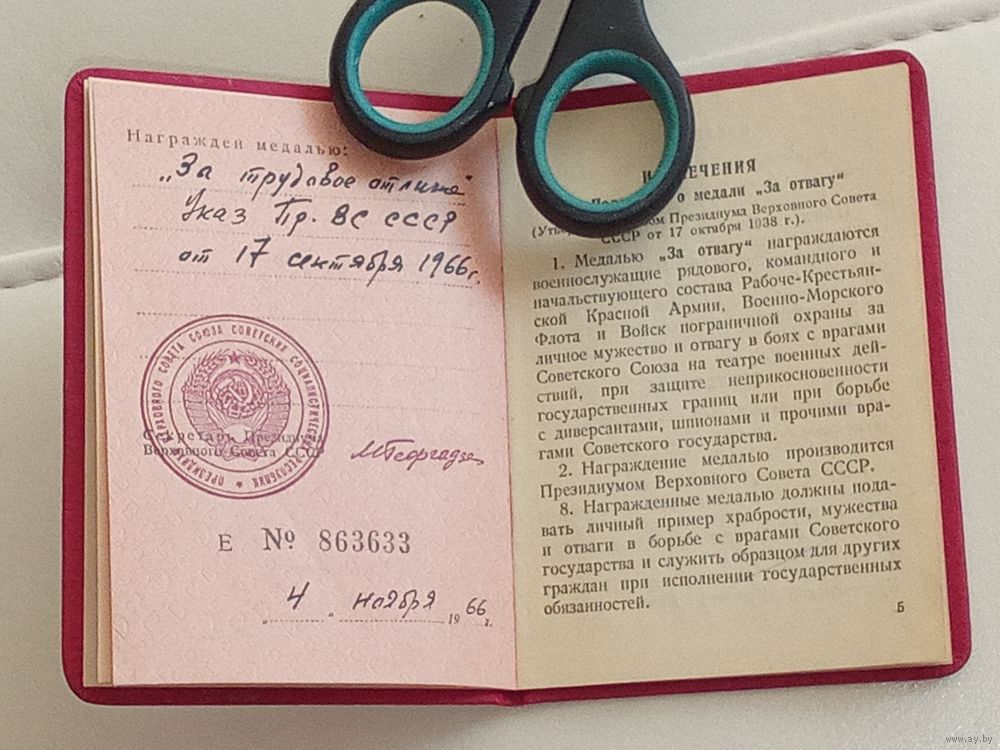 Награжден медалью:
„За трудовое отличие"
Указ Пр. ВС СССР
от 17 сентября 1966г.
ПРЕЗИДИУМ ВЕРХОВНОГО СОВЕТА СОЮЗА СОВЕТСКИХ СОЦИАЛИСТИЧЕСКИХ РЕСПУБЛИК
Секретарь Президиума
Верховного Совета СССР
МГеоргадзе
Е № 863633
„ 4 " ноября 1966 г.
о медали „За отвагу"
Президиума Верховного Совета
СССР от 17 октября 1938 г.).
1. Медалью „За отвагу" награждаются
военнослужащие рядового, командного и
начальствующего состава Рабоче-Крестьян-
ской Красной Армии, Военно-Морского
Флота и Войск пограничной охраны за
личное мужество и отвагу в боях с врагами
Советского Союза на театре военных дей-
ствий, при защите неприкосновенности
государственных границ или при борьбе
с диверсантами, шпионами и прочими вра-
гами Советского государства.
2. Награждение медалью производится
Президиумом Верховного Совета СССР.
8. Награжденные медалью должны пода-
вать личный пример храбрости, мужества
и отваги в борьбе с врагами Советского
государства и служить образцом для других
граждан при исполнении государственных
обязанностей.
5
www.ay.by